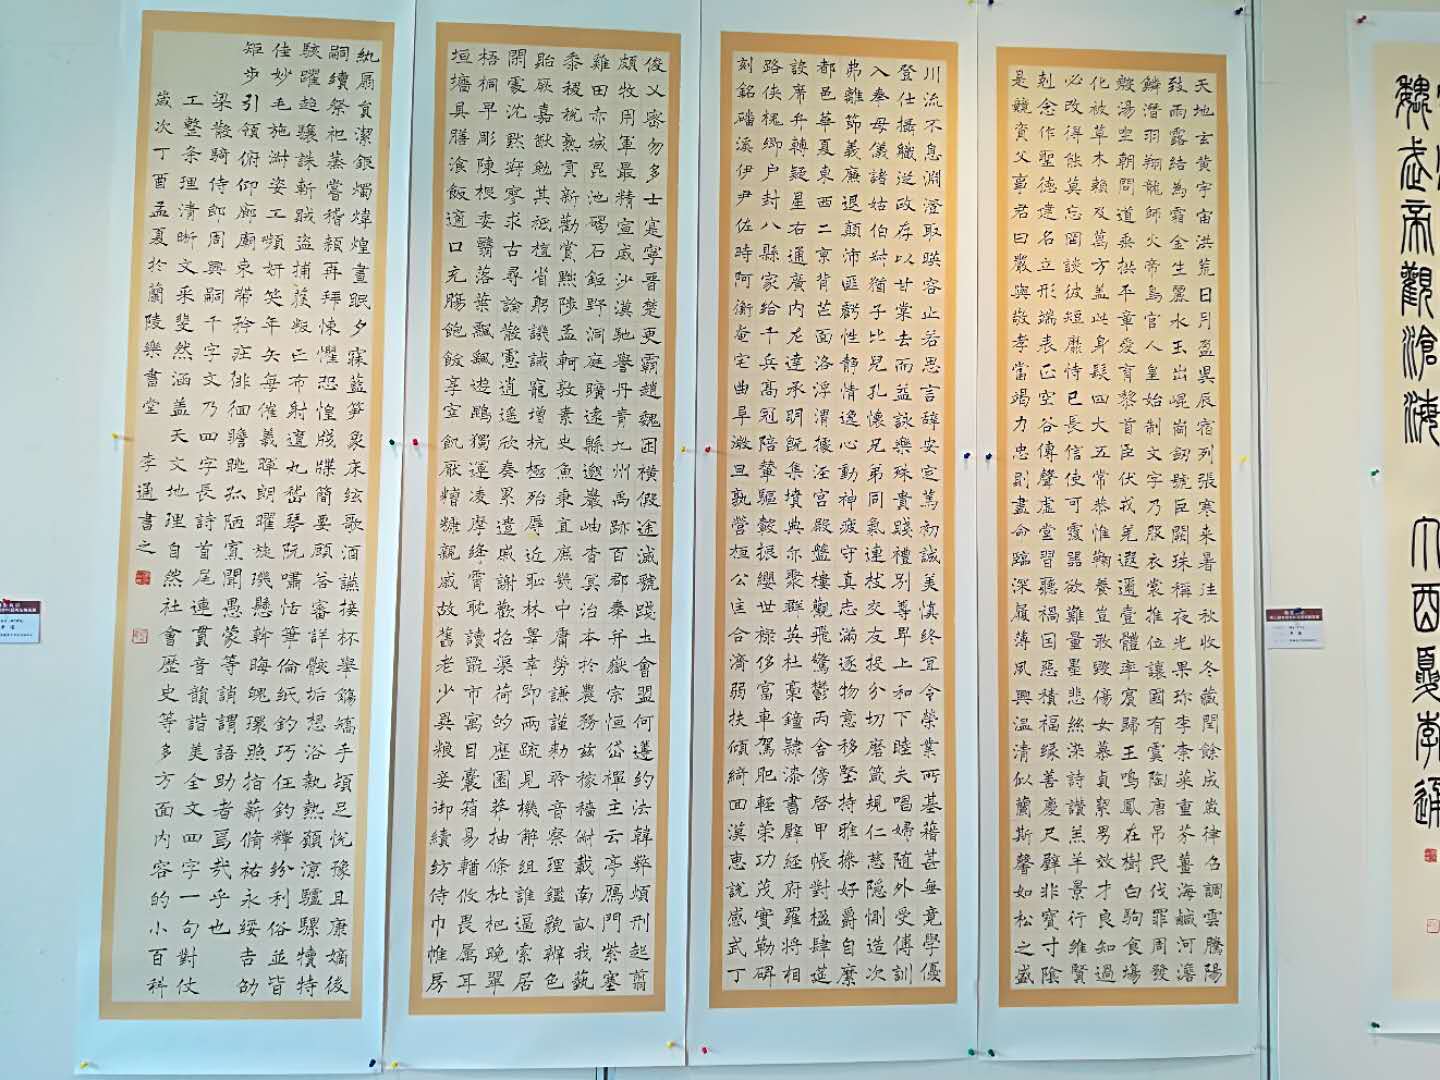 天地玄黄宇宙洪荒日月盈昃辰宿列張寒来暑往秋收冬藏閏餘成歲律吕調雲騰陽
致雨露結為霜金生麗水玉出崐崗劒號巨闕珠稱夜光果珍李柰菜重芥薑海鹹河澹
鱗潛羽翔龍師火帝鳥官人皇始制文字乃服衣裳推位讓國有虞陶唐吊民伐罪周發
殷湯坐朝問道垂拱平章愛育黎首臣伏戎羌遐邇壹體率賓歸王鳴鳳在樹白駒食場
化被草木賴及萬方盖此身髮四大五常恭惟鞠養豈敢毀傷女慕貞絜男效才良知過
必改得能莫忘罔談彼短靡恃己長信使可覆器欲難量墨悲絲染詩讚羔羊景行維賢
剋念作聖德建名立形端表正空谷傳聲虛堂習聽禍因惡積福緣善慶尺璧非寶寸陰
是競資父事君曰嚴與敬孝當竭力忠則盡命臨深履薄夙興温清似蘭斯馨如松之盛
川流不息淵澄取暎容止若思言辭安定篤初誠美慎終宜令榮業所基藉甚無竟學優
登仕攝職從政存以甘棠去而益詠樂殊貴賤禮別尊卑上和下睦夫唱婦随外受傅訓
入奉母儀諸姑伯叔猶子比兒孔懷兄弟同氣連枝交友投分切磨箴規仁慈隱惻造次
弗離節義廉退顛沛匪虧性静情逸心動神疲守真志滿逐物意移堅持雅操好爵自縻
都邑華夏東西二京背芒面洛浮渭據涇宮殿盤樓觀飛驚鬱丙舍傍啓甲帳對楹肆筵
設席弁轉疑星右通廣内左達承明既集墳典亦聚群英杜稾鐘隸漆書壁經府羅將相
路俠槐卿户封八縣家給千兵高冠陪輦驅轂振纓世禄侈富車駕肥輕策功茂實勒碑
刻銘磻溪伊尹佐時阿衡奄宅曲阜微旦孰營桓公匡合濟弱扶傾綺回漢惠說感武丁
俊乂密勿多士寔寧晉楚更霸趙魏困横假途滅虢踐土會盟何遵約法韓弊煩刑起翦
頗牧用軍最精宣威沙漠馳譽丹青九州禹跡百郡秦并嶽宗恒岱禪主云亭鴈門紫塞
雞田赤城昆池碣石鉅野洞庭曠遠緜邈巖岫杳冥治本於農務兹稼穡俶載南畝我藝
黍稷稅熟貢新勸賞黜陟孟軻敦素史魚秉直庶幾中庸勞謙謹勅聆音察理鑑貌辨色
貽厥嘉猷勉其祗植省躬譏誡寵增抗極殆辱近恥林皋幸即兩疏見機解組誰逼索居
閑處沉默寂寥求古尋論散慮逍遥欣奏累遣慼謝歡招渠荷的歷園莽抽條枇杷晚翠
梧桐早彫陳根委翳落葉飄颻遊鵾獨運凌摩絳霄耽讀翫市寓目囊箱易輶攸畏屬耳
垣墻具膳湌飯適口充腸飽飫享宰飢厭糟糠親戚故舊老少異粮妾御績紡侍巾帷房
紈扇員潔銀燭煒煌晝眠夕寐藍笋象床絃歌酒讌接杯舉觴矯手頓足悅豫且康嫡後
嗣續祭祀蒸嘗稽顙再拜悚懼恐惶牋牒簡要顧答審詳骸垢想浴執熱願凉驢騾犢特
駭躍超驤誅斬賊盜捕獲叛亡布射遼丸嵇琴阮嘯恬筆倫紙鈞巧任釣釋紛利俗並皆
佳妙毛施淑姿工顰妍笑年矢每催羲暉朗曜旋璣懸斡晦魄環照指薪脩祐永綏吉劭
矩步引領俯仰廊廟束帶矜莊徘徊瞻眺孤陋寡聞愚蒙等誚謂語助者焉哉乎也
梁散騎侍郎周興嗣千字文乃四字長詩首尾連貫音韻諧美全文四字一句對仗
工整条理清晰文采斐然涵盖天文地理自然社會歷史等多方面内容的小百科
歲次丁酉孟夏於蘭陵樂書堂 李通書之
魏武帝觀滄海 丁酉夏李通